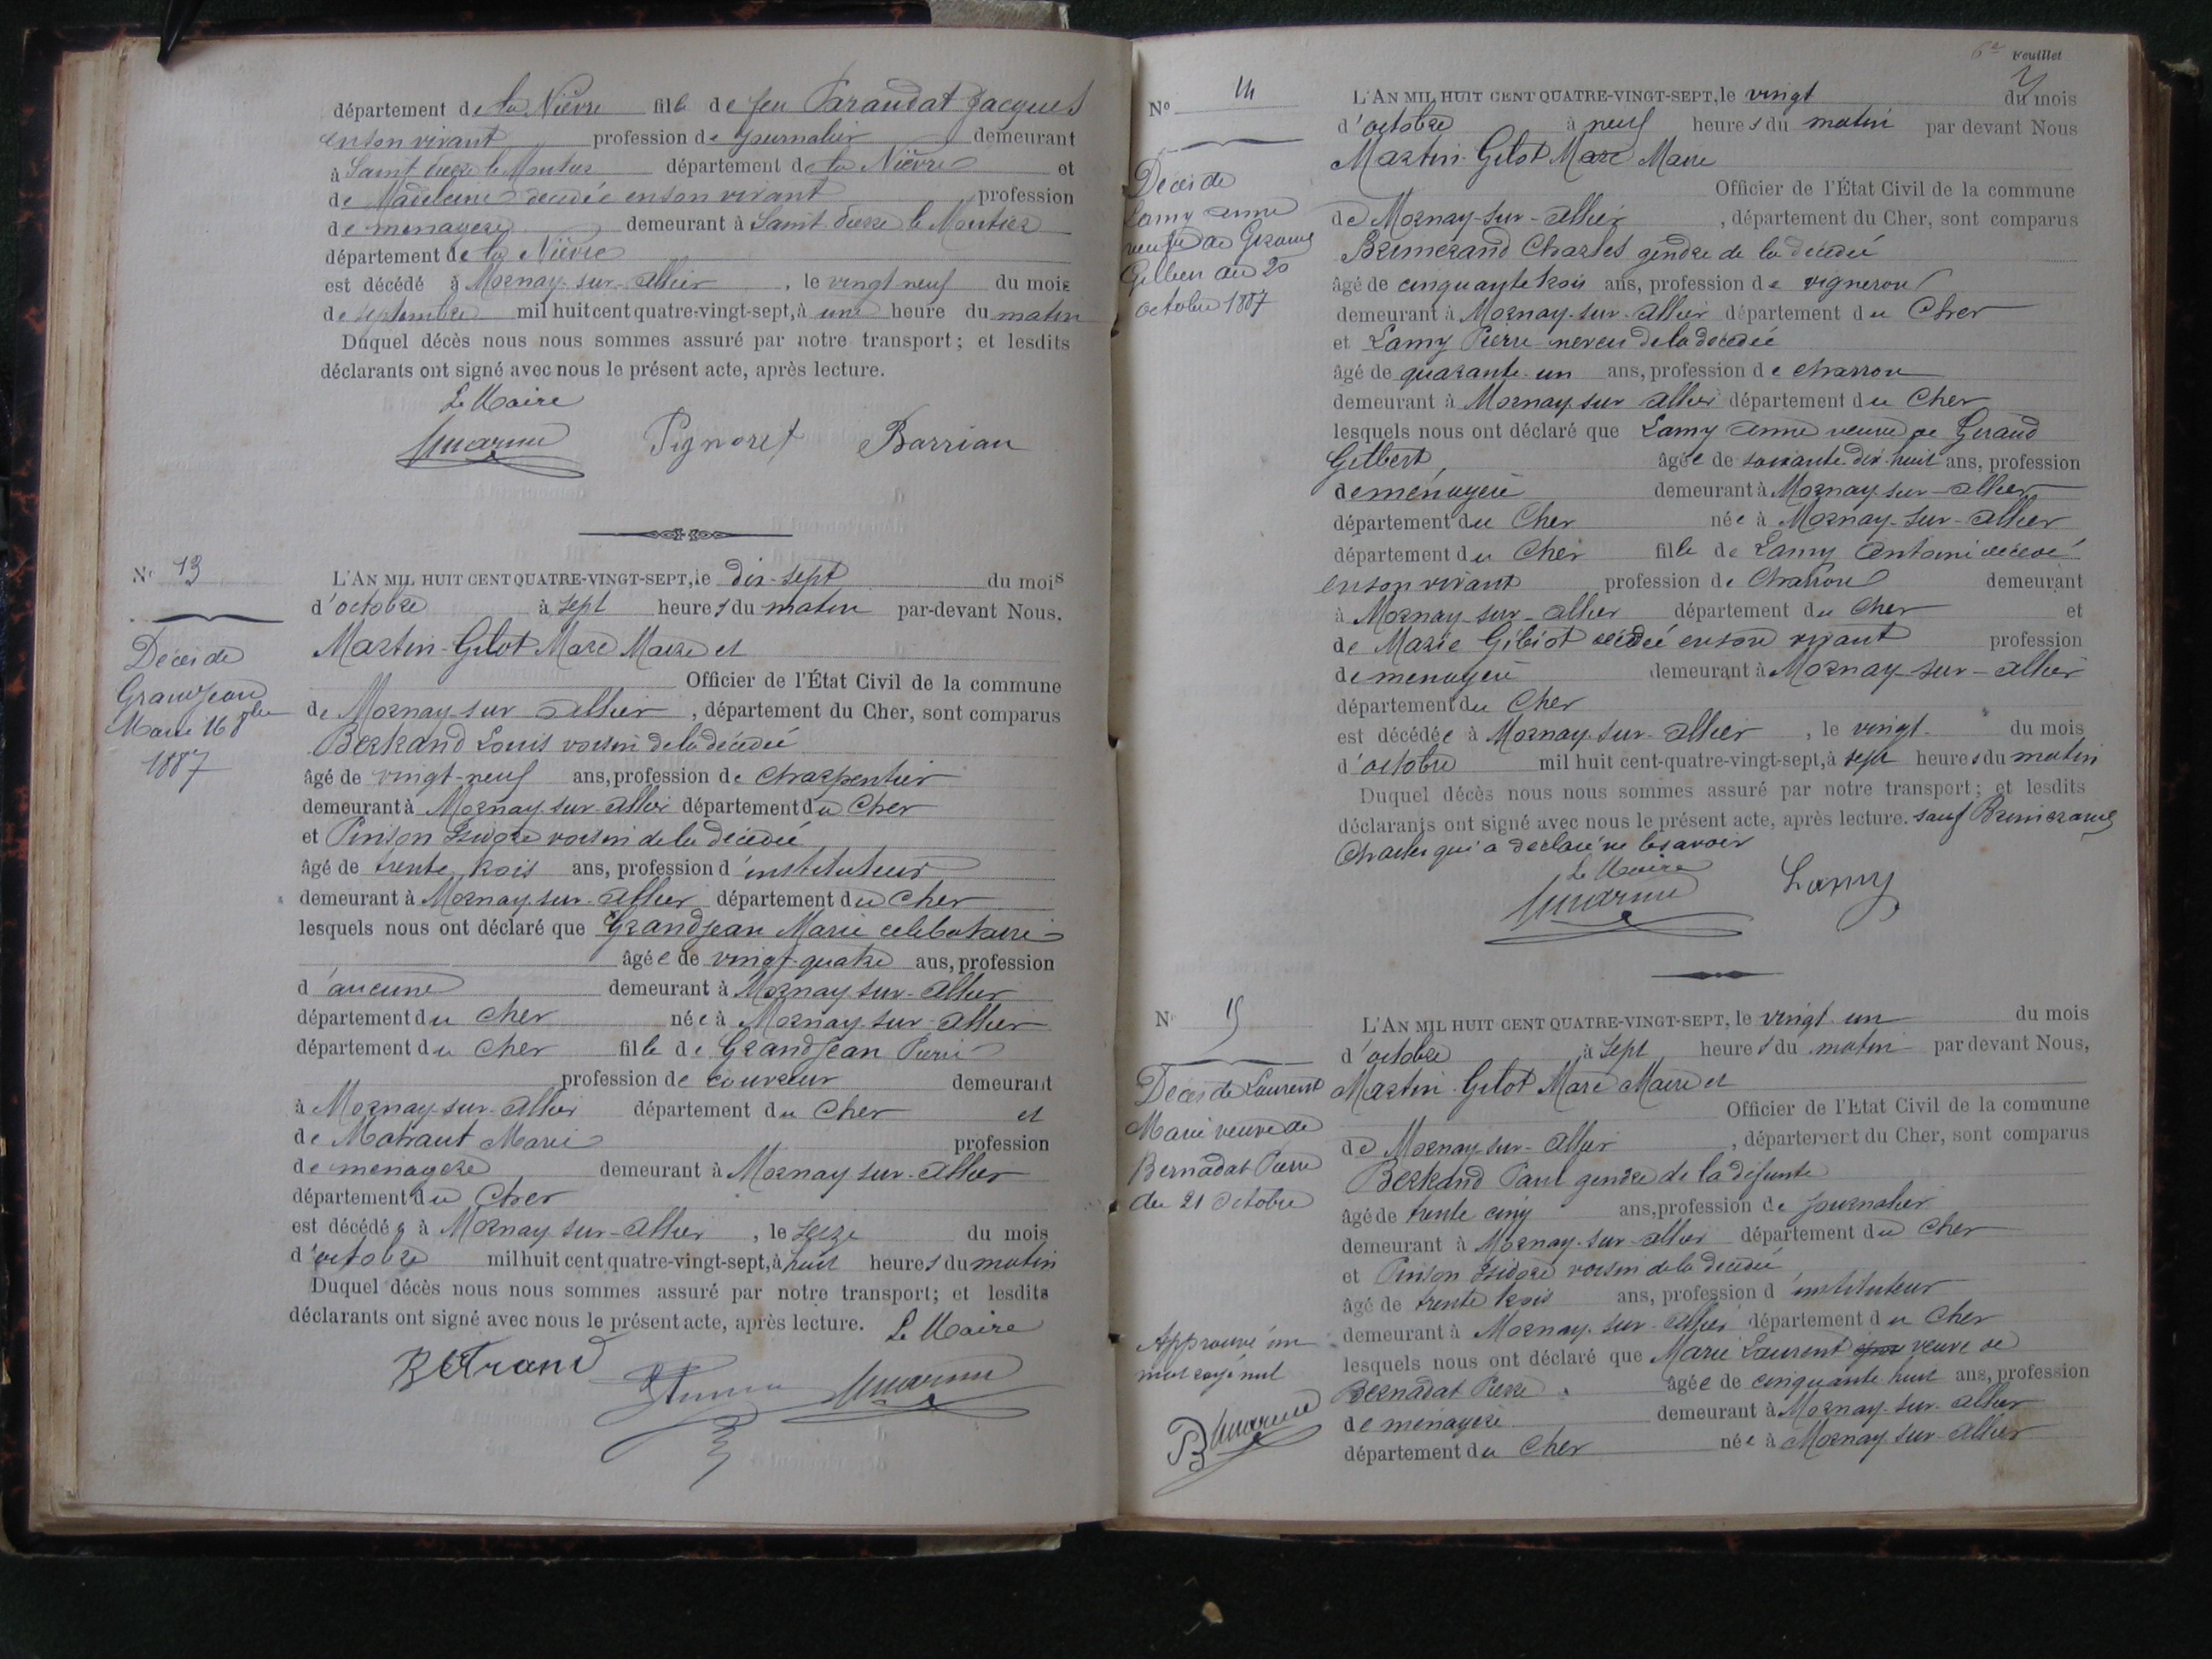 département de la Nièvre fils de feu Paraudat Jacques
en son vivant profession de journalier demeurant
à Saint Pierre le Moutier département de la Nièvre et
de Madeleine décédée en son vivant profession
de menagere demeurant à Saint Pierre le Moutier
département de la Nièvre
est décédé à Mornay-sur-Allier, le vingt neuf du mois
de septembre mil huit cent quatre-vingt-sept, à une heure du matin
Duquel décès nous nous sommes assuré par notre transport; et lesdits
déclarants ont signé avec nous le présent acte, après lecture.
Le Maire
Pignoret Barriau
No 13
Décès de
Grandjean
Marie 16 8bre
1887
L'AN MIL HUIT CENT QUATRE-VINGT-SEPT, le dix-sept du mois
d'octobre à sept heures du matin par-devant Nous.
Martin-Gilot Marc Maire et
Officier de l'État Civil de la commune
de Mornay-sur Allier, département du Cher, sont comparus
Bertrand Louis voisin de la décédée
âgé de vingt-neuf ans, profession de charpentier
demeurant à Mornay-sur-Allier département du Cher
et Pinson Isidore voisin de la décédée
âgé de trente trois ans, profession d'instituteur
demeurant à Mornay sur-Allier département du Cher
lesquels nous ont déclaré que Grandjean Marie celibataire
âgée de vingt-quatre ans, profession
d'aucune demeurant à Mornay-sur-Allier
département du Cher née à Mornay-sur-Allier
département du Cher fille de Grandjean Pierre
profession de couvreur demeurant
à Mornay-sur-Allier département du Cher et
de Matraut Marie profession
de menagère demeurant à Mornay sur-Allier
département du Cher
est décédée à Mornay-sur-Allier, le seize du mois
d'octobre mil huit cent quatre-vingt-sept, à huit heures du matin
Duquel décès nous nous sommes assuré par notre transport; et lesdits
déclarants ont signé avec nous le présent acte, après lecture. Le Maire
Bertrand
6e Feuillet
No 14
Décès de
Lamy Anne
veuve de Giraud
Gilbert du 20
octobre 1887
L'AN MIL HUIT CENT QUATRE-VINGT-SEPT, le vingt du mois
d'octobre à neuf heures du matin par devant Nous
Martin-Gilot Marc Maire
Officier de l'État Civil de la commune
de Mornay-sur-Allier, département du Cher, sont comparus
Brimerand Charles gendre de la décédée
âgé de cinquante trois ans, profession de vigneron
demeurant à Mornay-sur-Allier département du Cher
et Lamy Pierre neveu de la décédée
âgé de quarante-un ans, profession de charron
demeurant à Mornay-sur Allier département du Cher
lesquels nous ont déclaré que Lamy Anne veuve de Giraud
Gilbert âgée de soixante dix-huit ans, profession
de ménagère demeurant à Mornay sur-Allier
département du Cher née à Mornay-sur-Allier
département du Cher fille de Lamy Antoine décédé
en son vivant profession de Charron demeurant
à Mornay-sur-Allier département du Cher et
de Marie Gibiot décédée en son vivant profession
de menagère demeurant à Mornay-sur-Allier
département du Cher
est décédée à Mornay-sur-Allier, le vingt du mois
d'octobre mil huit cent-quatre-vingt-sept, à sept heures du matin
Duquel décès nous nous sommes assuré par notre transport; et lesdits
déclarants ont signé avec nous le présent acte, après lecture. sauf Brimerand
Charles qui a déclaré ne le savoir
Le Maire
Lamy
No 15
Décès de Laurent
Marie veuve de
Bernadat Pierre
du 21 Octobre
L'AN MIL HUIT CENT QUATRE-VINGT-SEPT, le vingt-un du mois
d'octobre à sept heures du matin par devant Nous,
Martin-Gilot Marc Maire et
Officier de l'Etat Civil de la commune
de Mornay-sur-Allier, département du Cher, sont comparus
Bertrand Paul gendre de la défunte
âgé de trente cinq ans, profession de journalier
demeurant à Mornay-sur-Allier département du Cher
et Pinson Isidore voisin de la décédée
âgé de trente trois ans, profession d'instituteur
demeurant à Mornay-sur-Allier département du Cher
lesquels nous ont déclaré que Marie Laurent veuve de
Bernadat Pierre âgée de cinquante huit ans, profession
de menagère demeurant à Mornay-sur-Allier
département du Cher née à Mornay-sur-Allier
Approuvé un
mot rayé nul